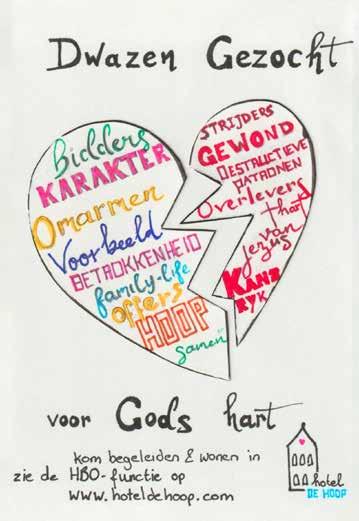 Dwazen Gezocht
Bidders
KARAKTER
Omarmen
Voorbeeld
BETROKKENHEID
family-life
offers
HOOP
samen
STRIJDERS
GEWOND
DESTRUCTIEVE
PATRONEN
Overlevers
thart
van
jezus
KANS
RYK
voor Gods hart
kom begeleiden & wonen in
zie de HBO-functie op
www.hoteldehoop.com
hotel
DE HOOP